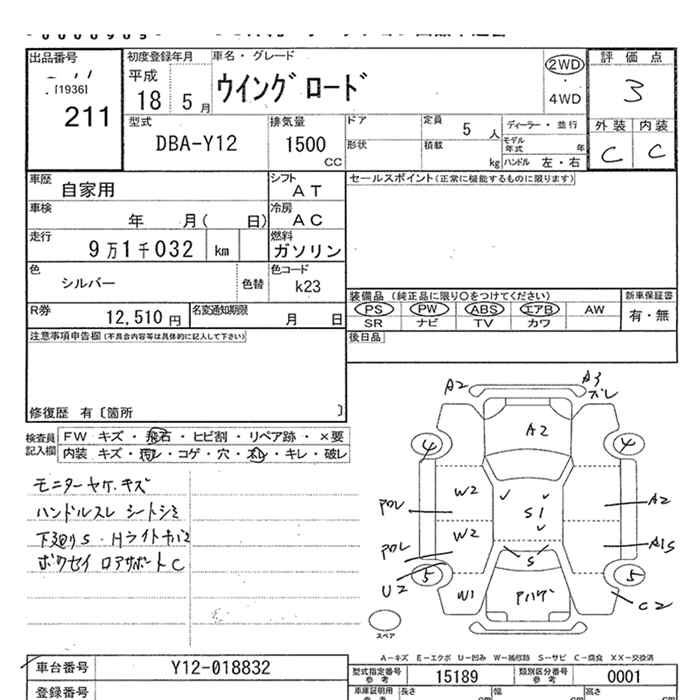 出品番号
[1936]
211
初度登録年月
平成
18 5 月
車名・グレード
ウイングロード
2WD
・
4WD
評価点
3
外装 内装
C C
型式
DBA-Y12
排気量
1500
CC
ドア
形状
定員 5 人
積載 kg
ディーラー・並行
モデル年式 年
ハンドル 左・右
車歴
自家用
シフト
AT
セールスポイント(正常に機能するものに限ります)
車検
年 月( 日)
冷房
AC
走行
9万1千032 km
燃料
ガソリン
色
シルバー
色替
色コード
k23
装備品 (純正品に限り○をつけてください)
新車保証書
PS PW ABS エアB AW
SR ナビ TV カワ
有・無
R券
12,510 円
名変通知期限
月 日
後日品
注意事項申告欄(不具合内容等は具体的に記入して下さい)
修復歴 有〔箇所 〕
検査員
記入欄
FW キズ・飛石・ヒビ割・リペア跡・×要
内装 キズ・汚レ・コゲ・穴・スレ・キレ・破レ
モニターヤケ.キズ
ハンドルスレ シートシミ
下廻りS・Hライト
ロアサポートC
A2
A3
ズレ
A2
4
4
W2
S1
A2
W2
A1S
S
5
5
U2
W1
アハゲ
C2
スペア
A-キズ E-エクボ U-凹み W-補修跡 S-サビ C-腐食 XX-交換済
車台番号
Y12-018832
型式指定番号
参考
15189
類別区分番号
参考
0001
登録番号
車庫証明用
参考
長さ
幅
高さ